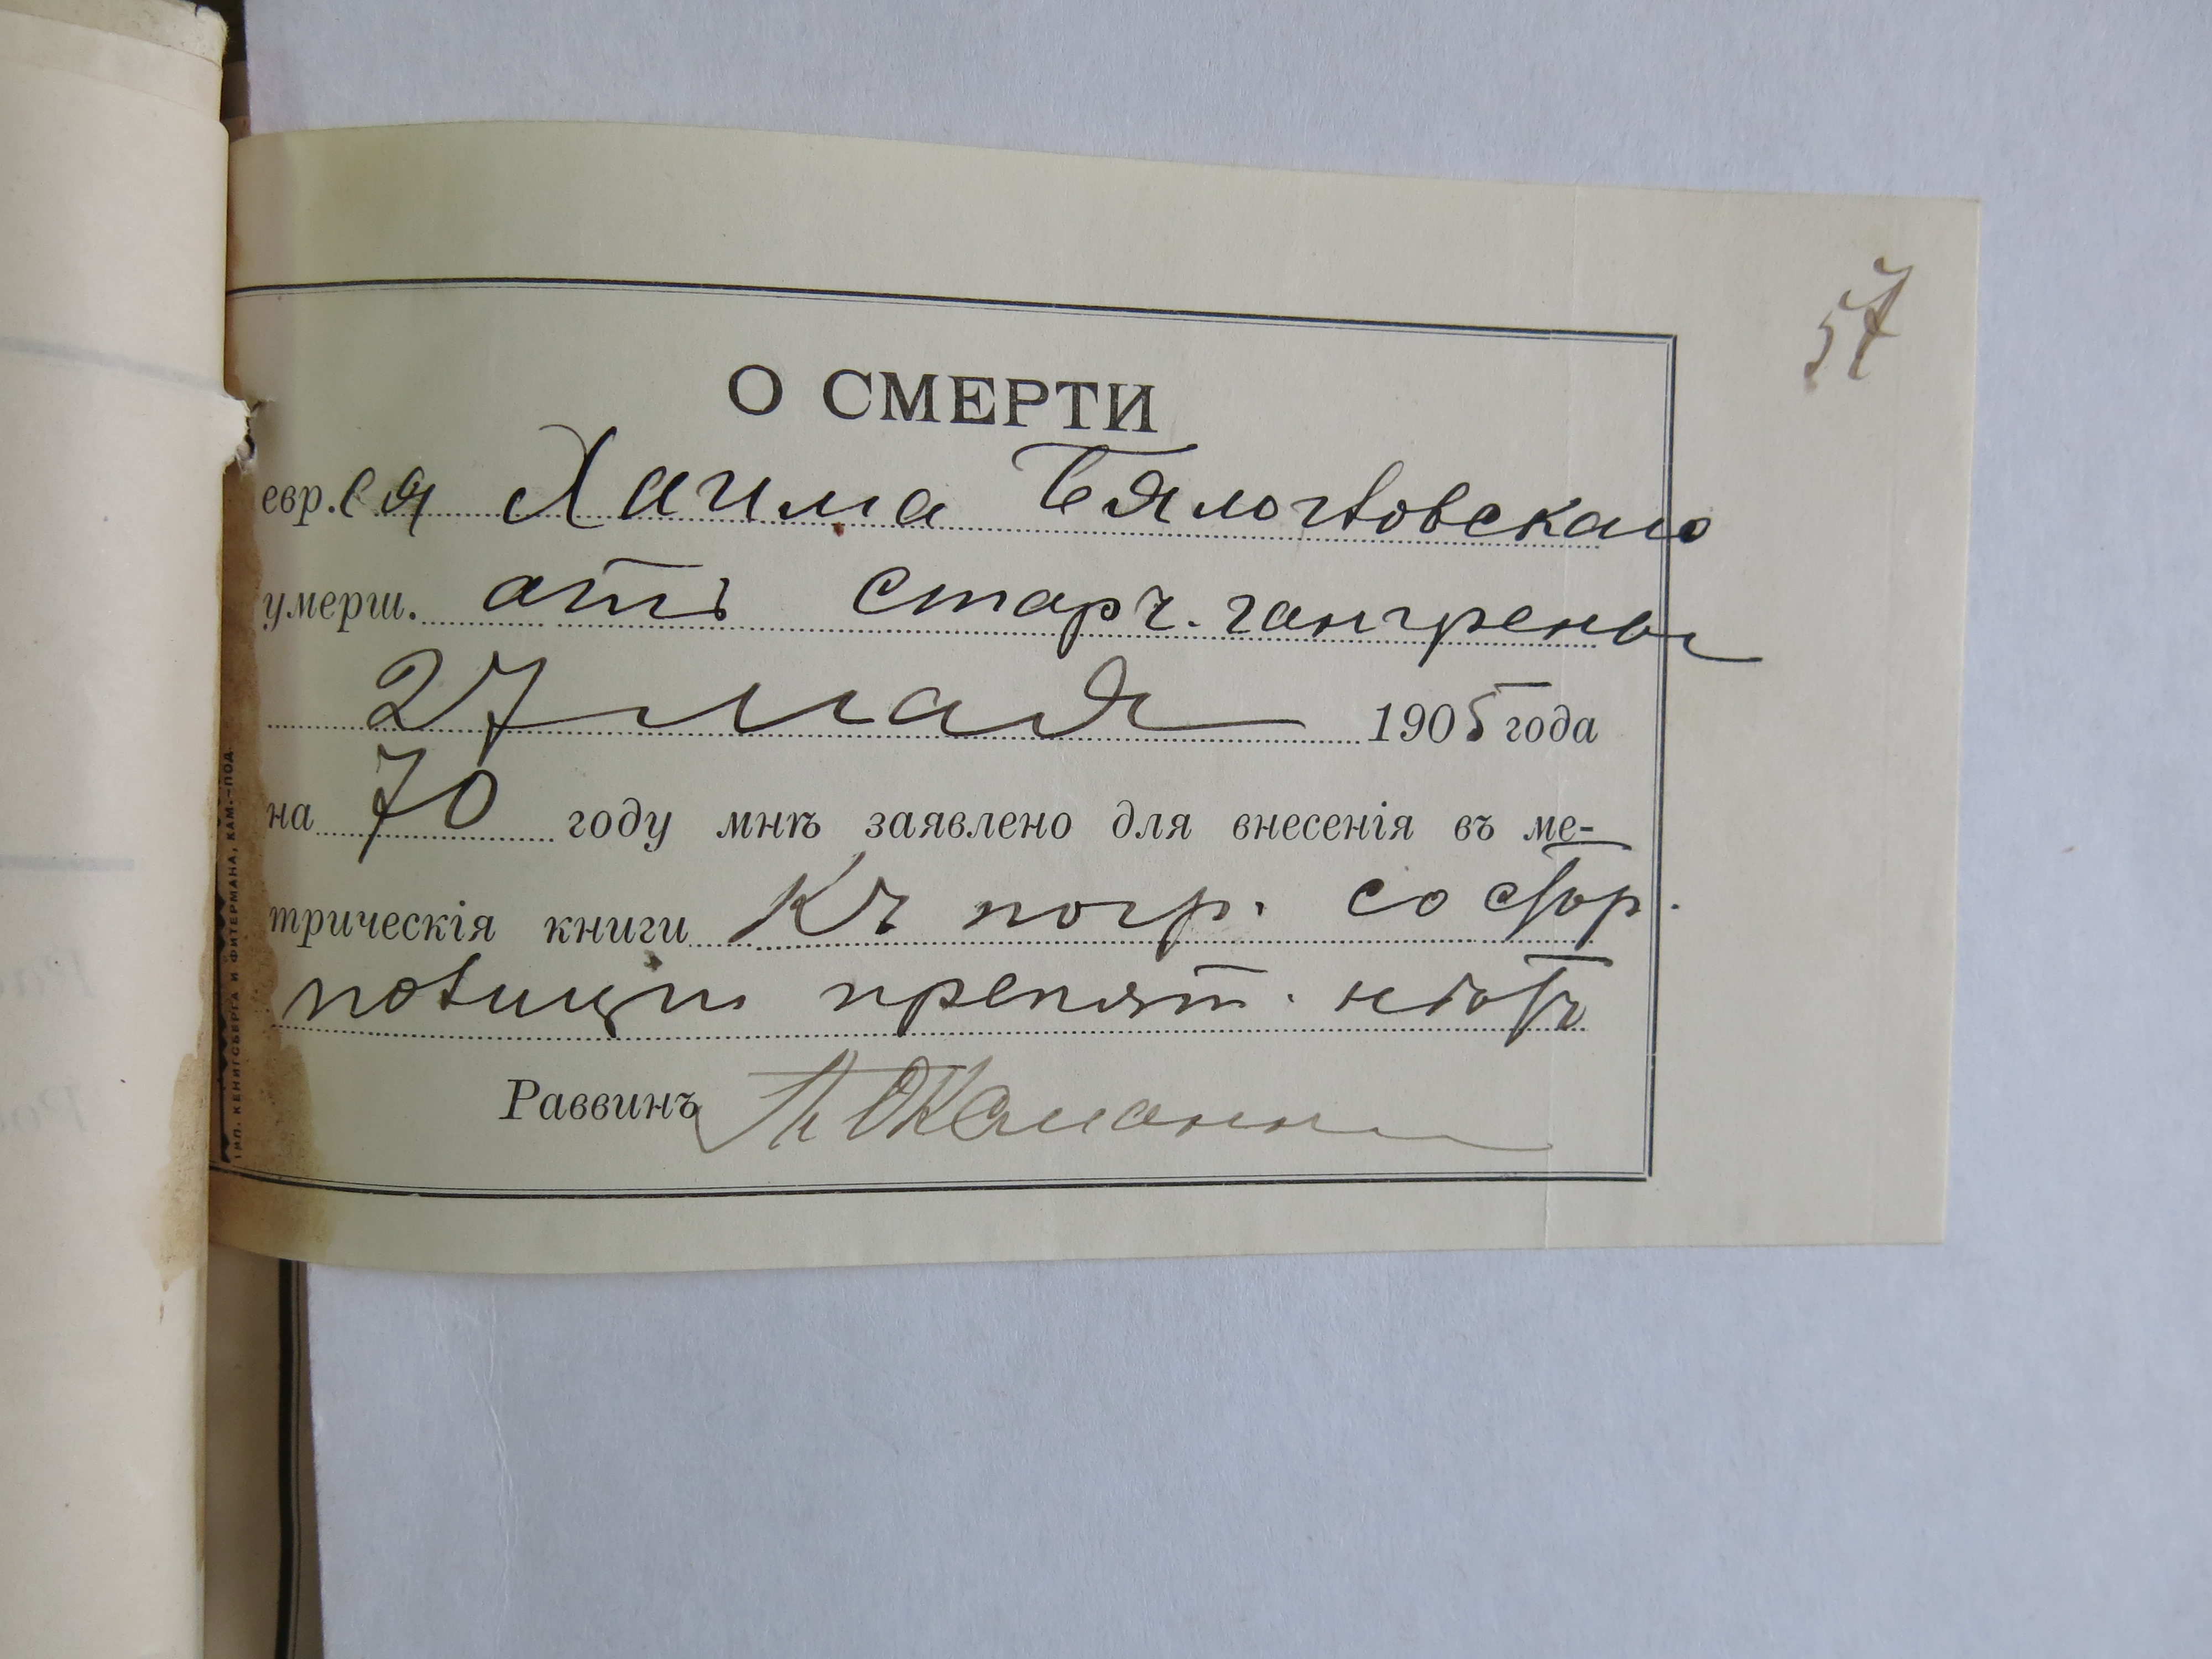 57
О СМЕРТИ
евр.ея Хаима Бялогловскаго
умерш. отъ старч. гангрены
27 мая 1905 года
на 70 году мнѣ заявлено для внесенія въ ме-
трическія книги Къ погр. со стор.
полиціи препят. нѣтъ
Раввинъ
ТИП. КЕНИГСБЕРГА И ФИТЕРМАНА, КАМ.-ПОД.